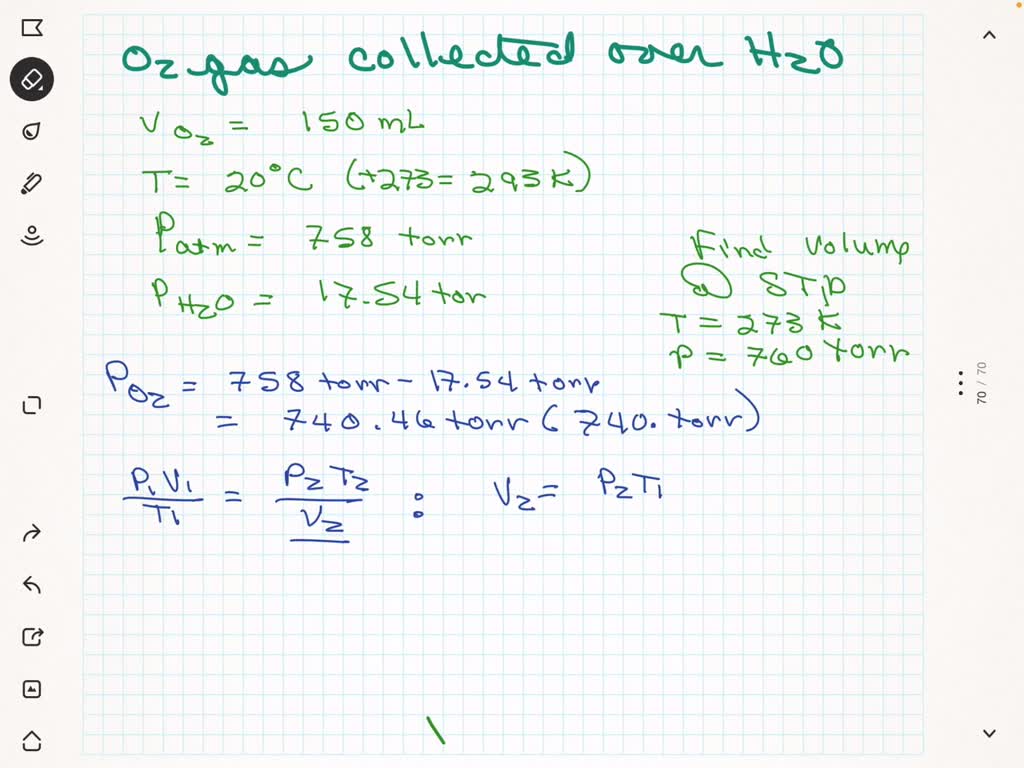 O₂ gas collected over H₂O
V O₂ = 150 mL
T = 20°C (+273 = 293 K)
P atm = 758 torr
P H₂O = 17.54 tor
Find Volume
@ STP
T = 273 K
P = 760 torr
P O₂ = 758 torr - 17.54 torr
= 740.46 torr (740. torr)
P₁V₁/T₁ = P₂T₂/V₂ : V₂ = P₂T₁
70 / 70